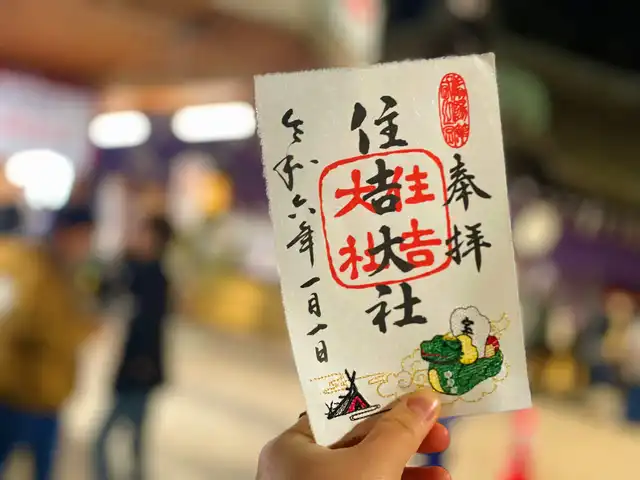 奉拝
住吉大社
住吉
大社
令和六年一月一日
宝